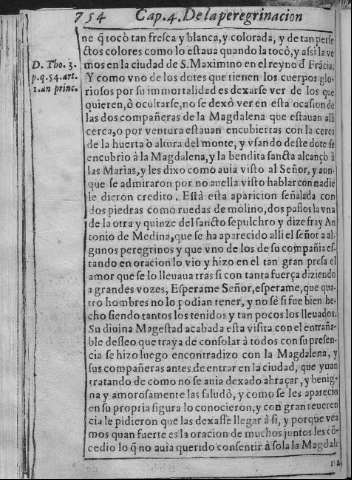 754 Cap.4. De la peregrinacion
ne q̃ tocò tan fresca y blanca, y colorada, y de tan perfe
ctos colores como lo estaua quando la tocò, y assi la ve
mos en la ciudad de S. Maximino en el reyno đ Frãcia.
D. Tho. 3.
p.q.54.art.
1.an princ.
Y como vno de los dotes que tienen los cuerpos glo-
riosos por su immortalidad es dexarse ver de los que
quieren, ò ocultarse, no se dexò ver en esta ocasion de
las dos compañeras de la Magdalena que estauan alli
cerca, o por ventura estauan encubiertas con la cerca
de la huerta ò altura del monte, y vsando deste dote se
encubrio à la Magdalena, y la bendita sancta alcançò à
las Marias, y les dixo como auia visto al Señor, y aun-
que se admiraron por no auella visto hablar con nadie
le dieron credito. Està esta aparicion señalada con
dos piedras como ruedas de molino, dos passos la vna
de la otra y quinze del sancto sepulchro y dize fray An
tonio de Medina, que se ha aparecido alli el señor a al-
gunos peregrinos y que vno de los de su compañia es-
tando en oracion lo vio y hizo en el tan gran presa el
amor que se lo lleuaua tras si con tanta fuerça diziendo
a grandes vozes, Esperame Señor, esperame, que qua-
tro hombres no lo podian tener, y no sè si fue bien he-
cho siendo tantos los tenidos y tan pocos los lleuados.
Su diuina Magestad acabada esta visita con el entraña-
ble desseo que traya de consolar à todos con su presen-
cia se hizo luego encontradizo con la Magdalena, y
sus compañeras antes de entrar en la ciudad, que yuan
tratando de como no se auia dexado abraçar, y benig-
na y amorosamente las saludò, y como se les aparecio
en su propria figura lo conocieron, y con gran reueren
cia le pidieron que las dexasse llegar à si, y porque vea
mos quan fuerte es la oracion de muchos juntos les cõ-
cedio lo q̃ no auia querido consentir à sola la Magdale